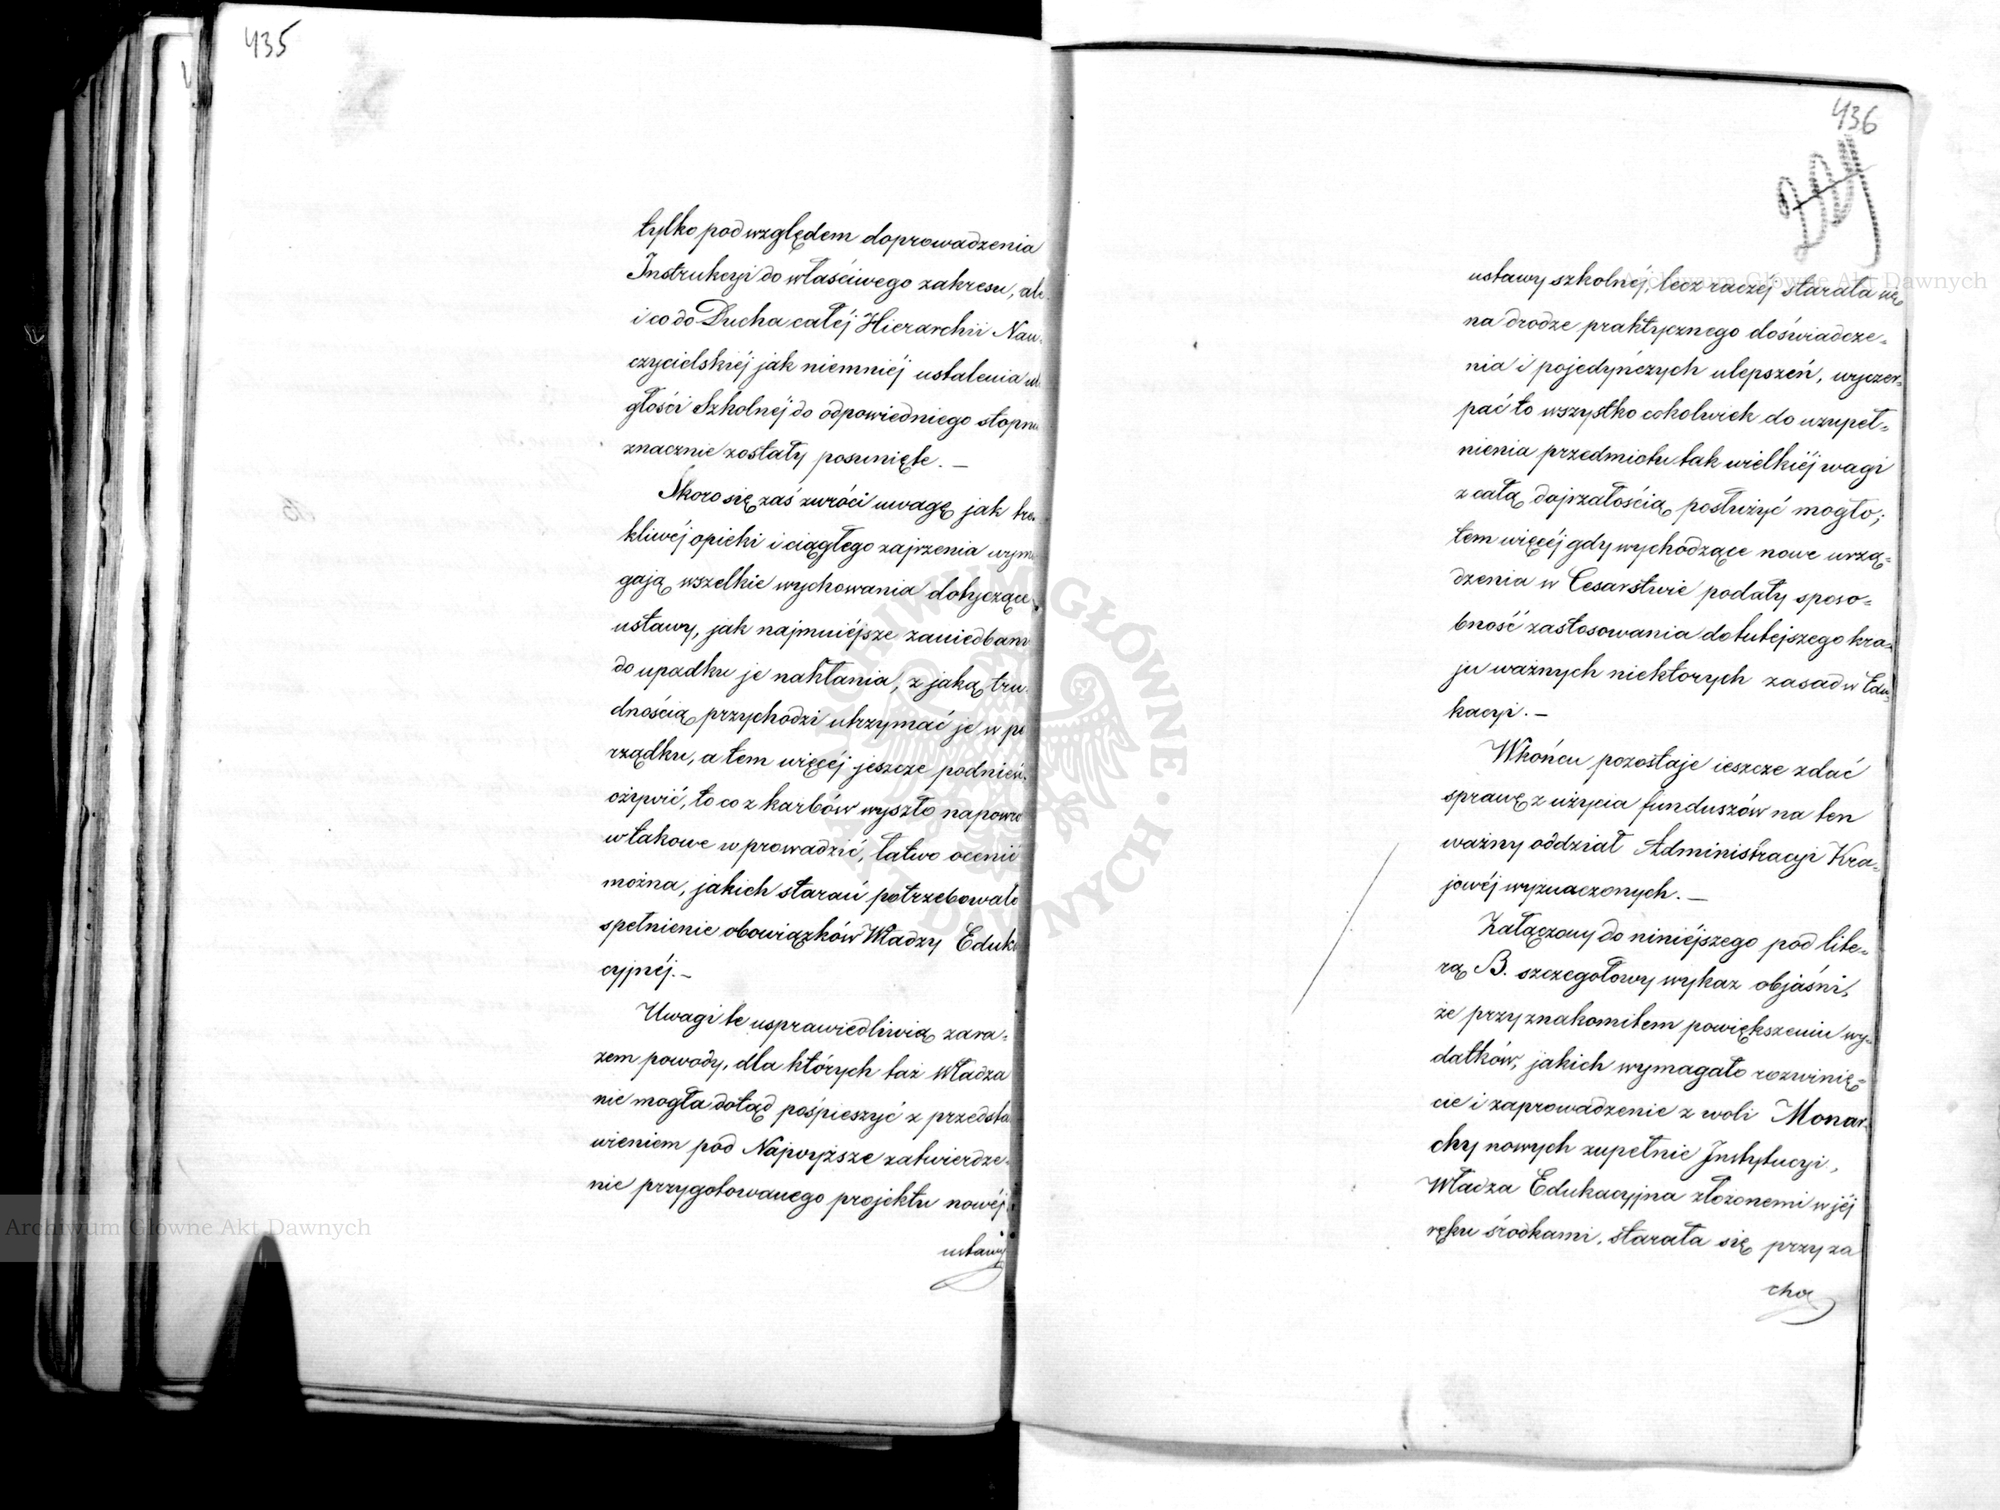 435
tylko pod względem doprowadzenia
Instrukcyi do właściwego zakresu, ale
i co do Ducha całéj Hierarchii Nau-
czycielskiéj jak niemniéj ustalenia
głości Szkolnéj do odpowiedniego stopnia
znacznie zostały posunięte. —
Skoro się zaś zwróci uwagę jak tro-
kliwéj opieki i ciągłego zajrzenia wyma
gają wszelkie wychowania dotyczące
ustawy, jak najmniéjsze zaniedbanie
do upadku je nakłania, z jaką tru-
dnością przychodzi utrzymać je w po
rządku, a tem więcéj jeszcze podnieść,
ożywić, to co z karbów wyszło napowró
w takowe wprowadzić, łatwo ocenić
można, jakich starań potrzebowało
spełnienie obowiązków Władzy Eduka
cyjnéj. —
Uwagi te usprawiedliwią zara-
zem powody, dla których taż Władza
nie mogła dotąd pośpieszyć z przedsta
wieniem pod Najwyższe zatwierdze-
nie przygotowanego projektu nowéj
ustawy
436
ustawy szkolnéj, lecz raczéj starała się
na drodze praktycznego doświadcze-
nia i pojedyńczych ulepszeń, wyczer-
pać to wszystko cokolwiek do uzupeł-
nienia przedmiotu tak wielkiéj wagi
z całą dojrzałością posłużyć mogło;
tem więcéj gdy wychodzące nowe urzą-
dzenia w Cesarstwie podały sposo-
bność zastosowania do tutejszego kra-
ju ważnych niektorych zasad w Edu-
kacyi. —
Wkońcu pozostaje ieszcze zdać
sprawę z użycia funduszów na ten
ważny oddział Administracyi Kra-
jowéj wyznaczonych. —
Załączony do niniéjszego pod lite-
rą B. szczegołowy wykaz objaśni,
że przy znakomitem powiększeniu wy-
datków, jakich wymagało rozwinię-
cie i zaprowadzenie z woli Monar-
chy nowych zupełnie Instytucyi,
Władza Edukacyjna złożonemi w jéj
ręku środkami, starała się przy za
cho
Archiwum Główne Akt Dawnych
Archiwum Główne Akt Dawnych
ARCHIWUM GŁÓWNE AKT DAWNYCH